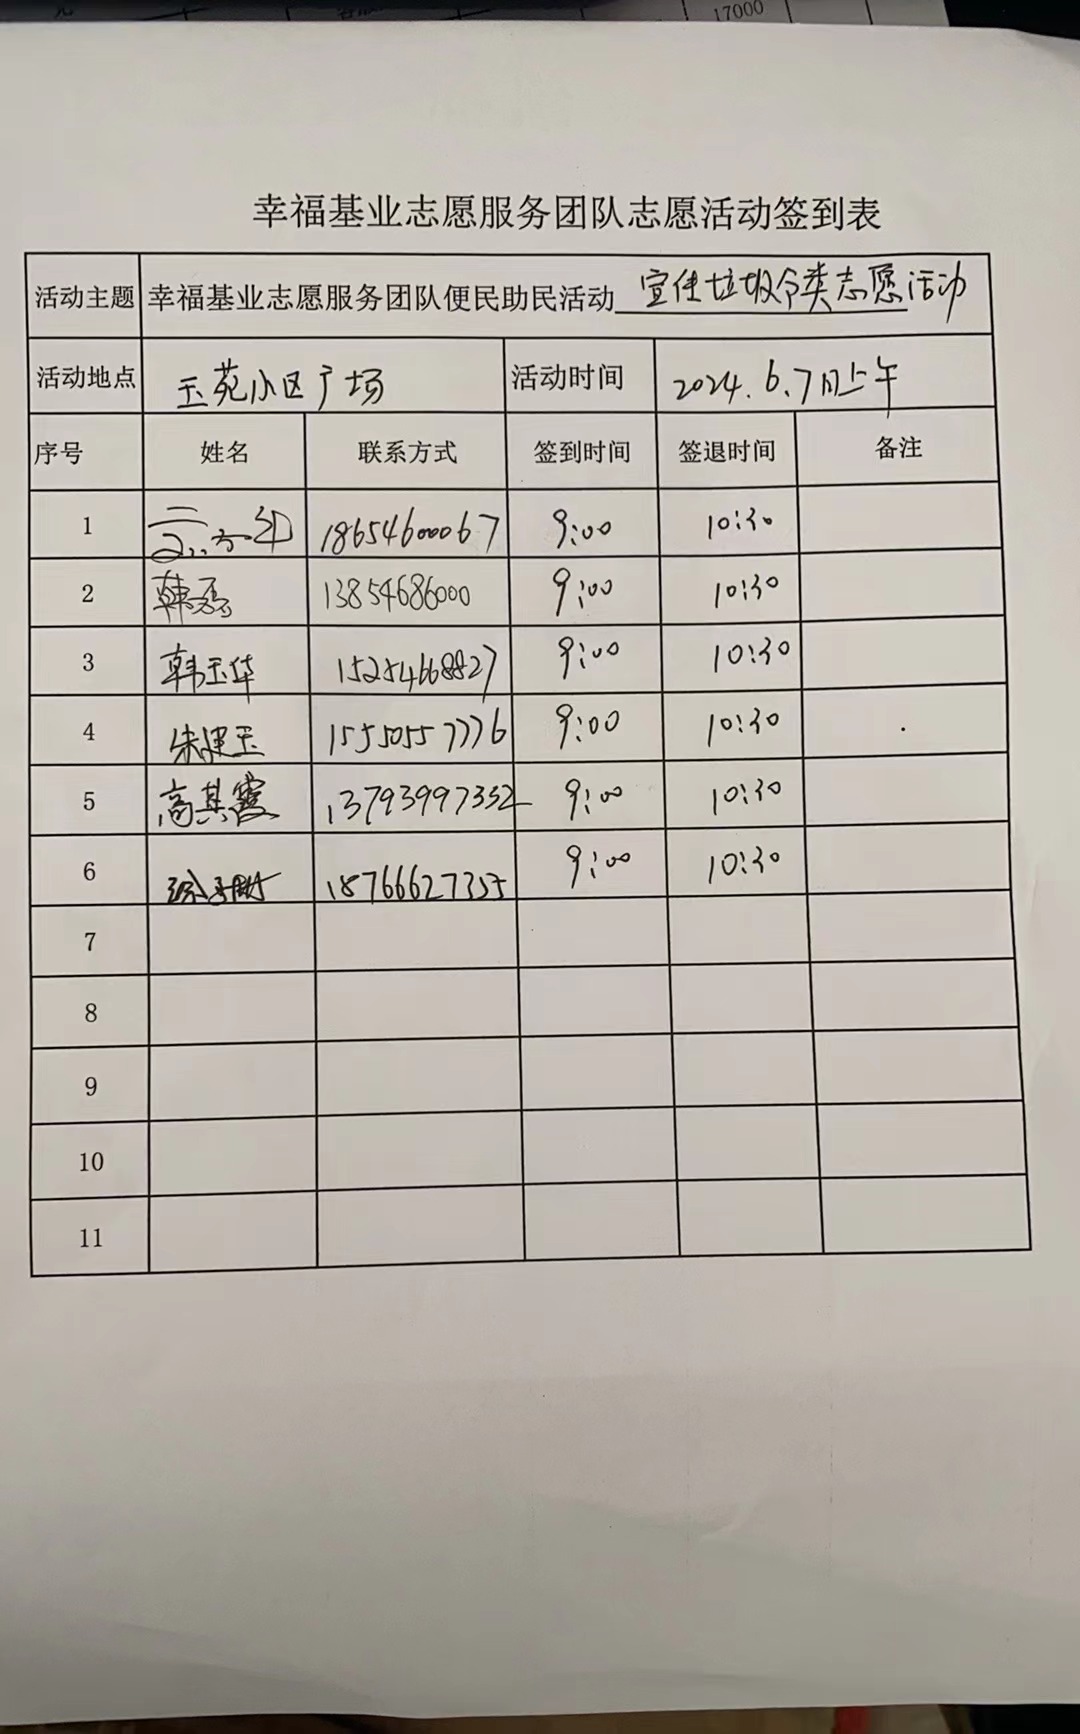 17000
幸福基业志愿服务团队志愿活动签到表
活动主题 幸福基业志愿服务团队便民助民活动 宣传垃圾分类志愿活动
活动地点 玉苑小区广场 活动时间 2024.6.7日上午
序号 姓名 联系方式 签到时间 签退时间 备注
1 18654600067 9:00 10:30
2 韩磊 13854686000 9:00 10:30
3 韩玉华 15254668827 9:00 10:30
4 朱建玉 15550557776 9:00 10:30
5 高其霞 13793997332 9:00 10:30
6 18766627355 9:00 10:30
7
8
9
10
11